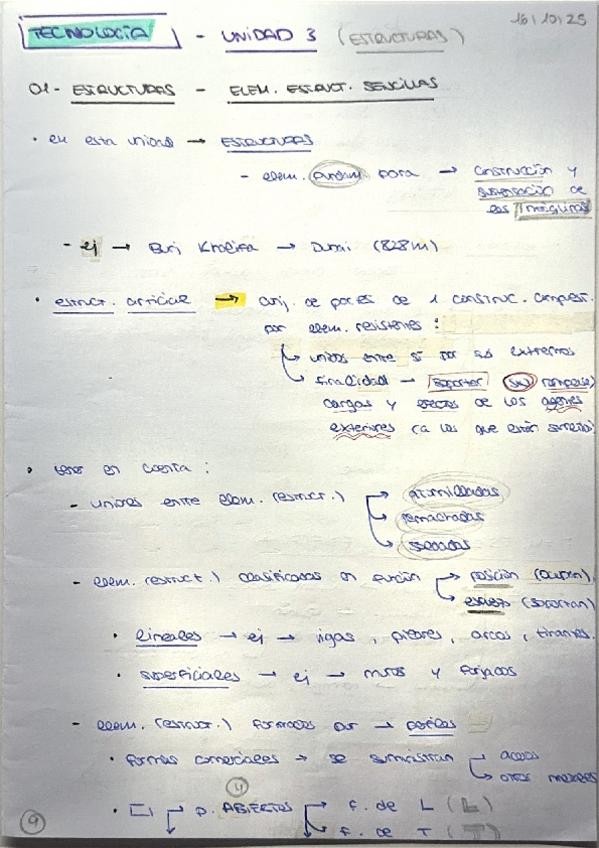 16/10/25
TECNOLOGÍA - UNIDAD 3 (ESTRUCTURAS)
01- ESTRUCTURAS - ELEM. ESTRUCT. SENCILLAS
• en esta unidad → ESTRUCTURAS
- elem. fundam para → construcción y
sustentación de
las máquinas
- ej → Burj Khalifa → Dubai (828m)
• estruct. artificial → conj. de partes de 1 construc. compuest.
por elem. resistentes:
↳ unidos entre sí por sus extremos
↳ finalidad → soportar (sin romperse)
cargas y efectos de los agentes
exteriores (a los que están sometidos
• tener en cuenta:
- uniones entre elem. (estruct.) → atornilladas
→ remachadas
→ soldadas
- elem. (estruct.) clasificados en función → posición (ocupan)
↳ esfuerzo (soportan)
• lineales → ej → vigas, pilares, arcos, tirantes.
• superficiales → ej → muros y forjados
- elem. (estruct.) formados por → perfiles
• formas comerciales → se suministran → aceros
↳ otros materiales
(4)
• → P. ABIERTOS → f. de L (L)
↓ → f. de T (T)
9